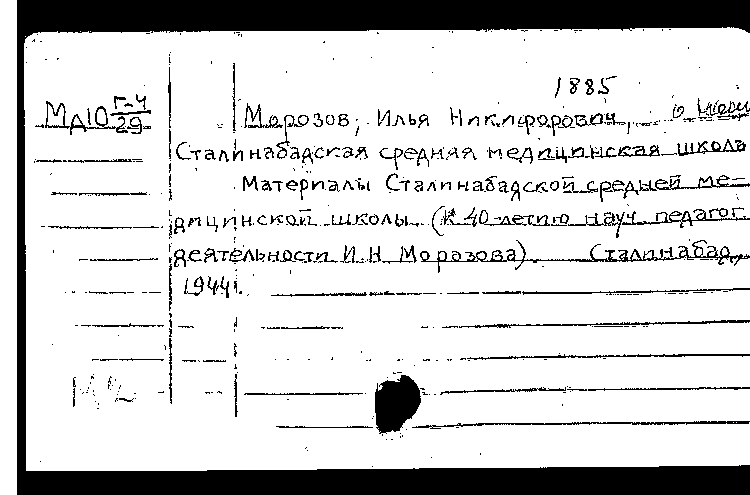 1885
МД10 Г-4/29 Морозов, Илья Никифорович, о
Сталинабадская средняя медицинская школа
Материалы Сталинабадской средней ме-
дицинской школы. (К 40-летию науч. педагог.
деятельности И.Н. Морозова). Сталинабад,
1944.